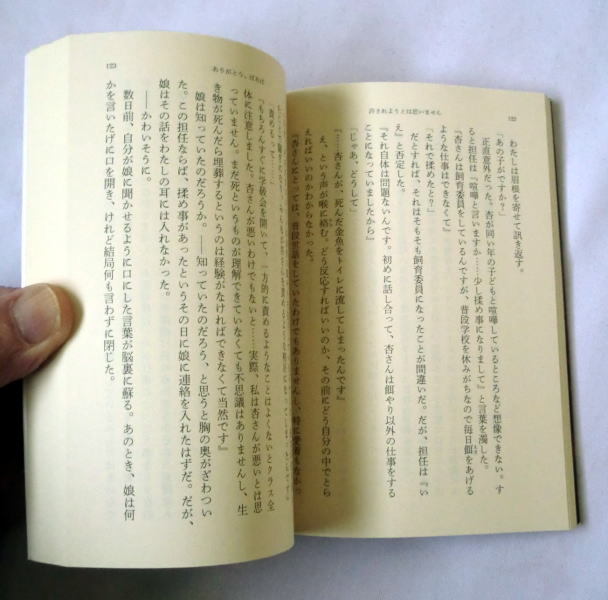 許されようとは思いません
122
わたしは眉根を寄せて訊き返す。
「あの子がですか？」
正直意外だった。杏が同い年の子どもと喧嘩しているところなど想像できない。す
ると担任は『喧嘩と言いますか……少し揉め事になりまして』と言葉を濁した。
『杏さんは飼育委員をしているんですが、普段学校を休みがちなので毎日餌をあげる
ような仕事はできなくて』
「それで揉めたと？」
だとすれば、それはそもそも飼育委員になったことが間違いだ。だが、担任は『い
え』と否定した。
『それ自体は問題ないんです。初めに話し合って、杏さんは餌やり以外の仕事をする
ことになっていましたから』
「じゃあ、どうして」
『……杏さんが、死んだ金魚をトイレに流してしまったんです』
え、という声が喉に絡む。どう反応すればいいのか、その前にどう自分の中でとら
えればいいのかわからなかった。
『杏さんにとっては、普段世話をしていたわけでもありませんし、特に愛着もなかっ
ありがとう、ばあば
123
「責めるって……」
『もちろんすぐに学級会を開いて、一方的に責めるようなことはよくないとクラス全
体に注意しました。杏さんが悪いわけでもないと……実際、私は杏さんが悪いとは思
っていません。まだ死というものが理解できていなくても不思議はありませんし、生
き物が死んだら埋葬するというのは経験がなければできなくて当然です』
娘は知っていたのだろうか。――知っていたのだろう、と思うと胸の奥がざわつい
た。この担任ならば、揉め事があったというその日に娘に連絡を入れたはずだ。だが、
娘はその話をわたしの耳には入れなかった。
――かわいそうに。
数日前、自分が娘に聞かせるように口にした言葉が脳裏に蘇る。あのとき、娘は何
かを言いたげに口を開き、けれど結局何も言わずに閉じた。